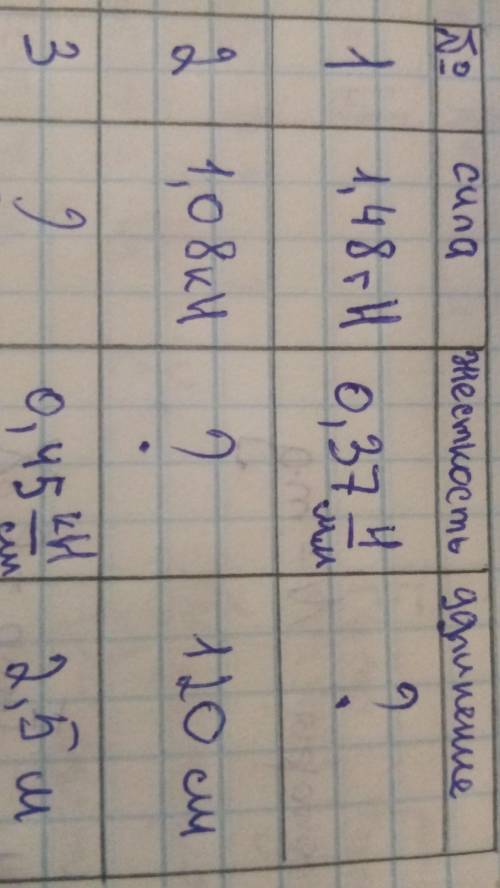 № сила жесткость удлинение
1 1,48 гН 0,37 Н/мм ?
2 1,08 кН ? 120 см
3 ? 0,45 кН/см 2,5 м